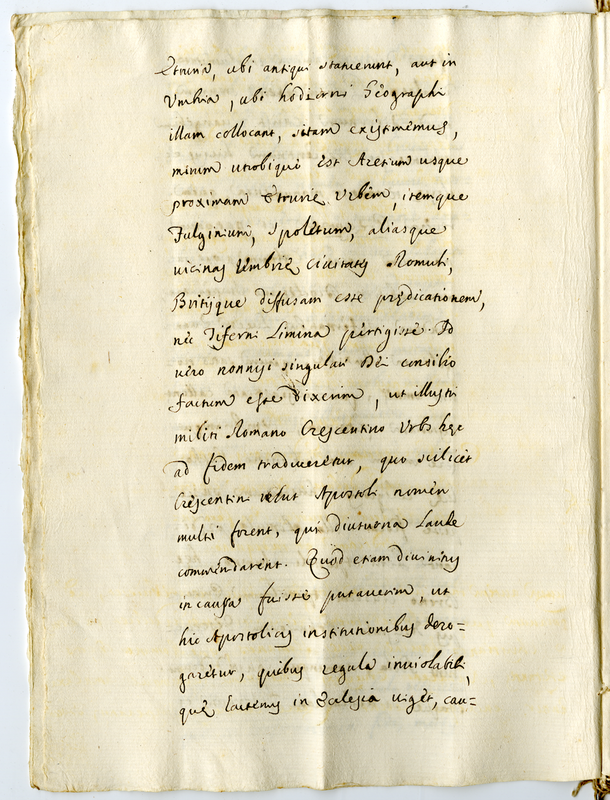 Etruria, ubi antiqui statuerunt, aut in
Vmbria, ubi hodierni Geographi
illam collocant, sitam existimemus,
mirum utrobique est Aretium usque
proximam Etrurię Vrbem, itemque
Fulginium, Spoletum, aliasque
vicinas Vmbrię Ciuitates Romuli,
Britijque diffusam esse prędicationem,
nec Tiferni Limina pertigisse. Id
vero nonnisi singulari Dei consilio
factum esse dixerim, ut illustri
militi Romano Crescentino Vrbs hęc
ad fidem traduceretur, quo scilicet
Crescentini velut Apostoli nomen
multi forent, qui diuturna Laude
commendarent. Quod etiam divinius
in caussa fuisse putaverim, ut
hic Apostolicis institutionibus dero=
garetur, quibus regula inviolabili,
quę hactenus in Ecclesia viget, cau=